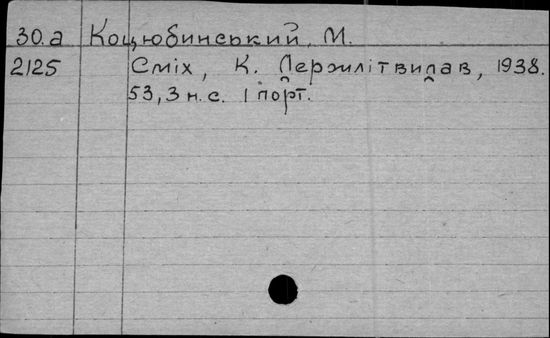 30.а Коцюбинський, М.
2125 Сміх, К. Держлітвидав, 1938.
53, 3 н. с. 1 порт.